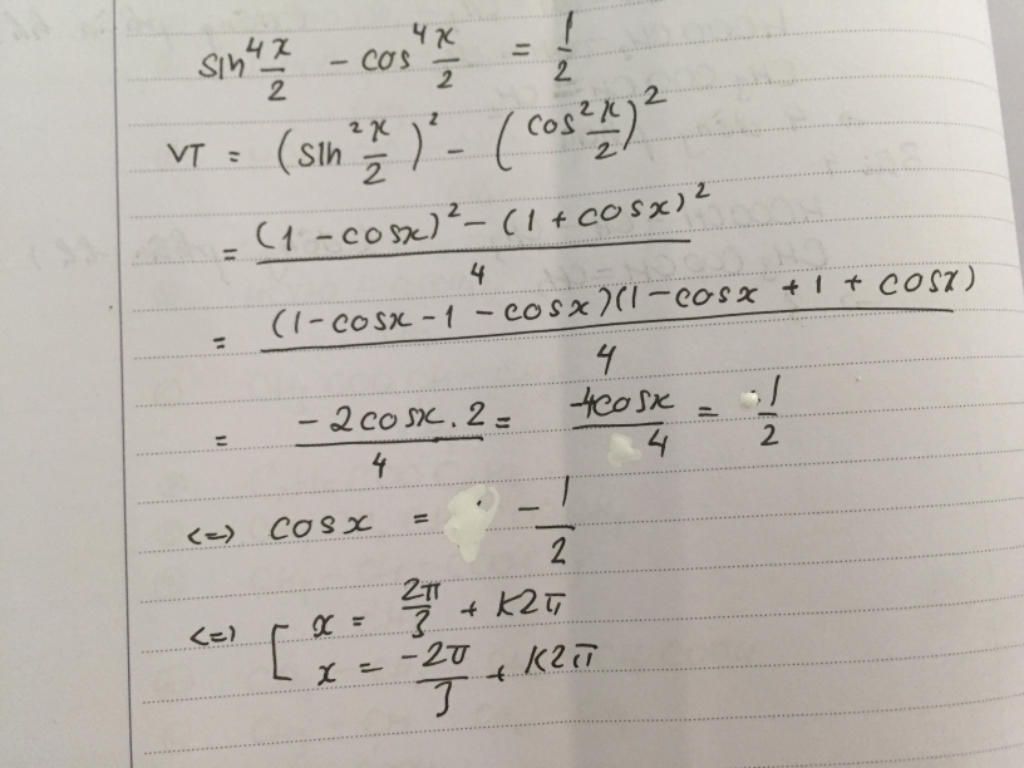 sin⁴ x/2 - cos⁴ x/2 = 1/2
VT = (sin² x/2)² - (cos² x/2)²
= ((1 - cosx)² - (1 + cosx)²)/4
= ((1 - cosx - 1 - cosx)(1 - cosx + 1 + cosx))/4
= (-2cosx . 2)/4 = (-4cosx)/4 = 1/2
<=> cosx = -1/2
<=> [ x = 2π/3 + K2π
x = -2π/3 + K2π